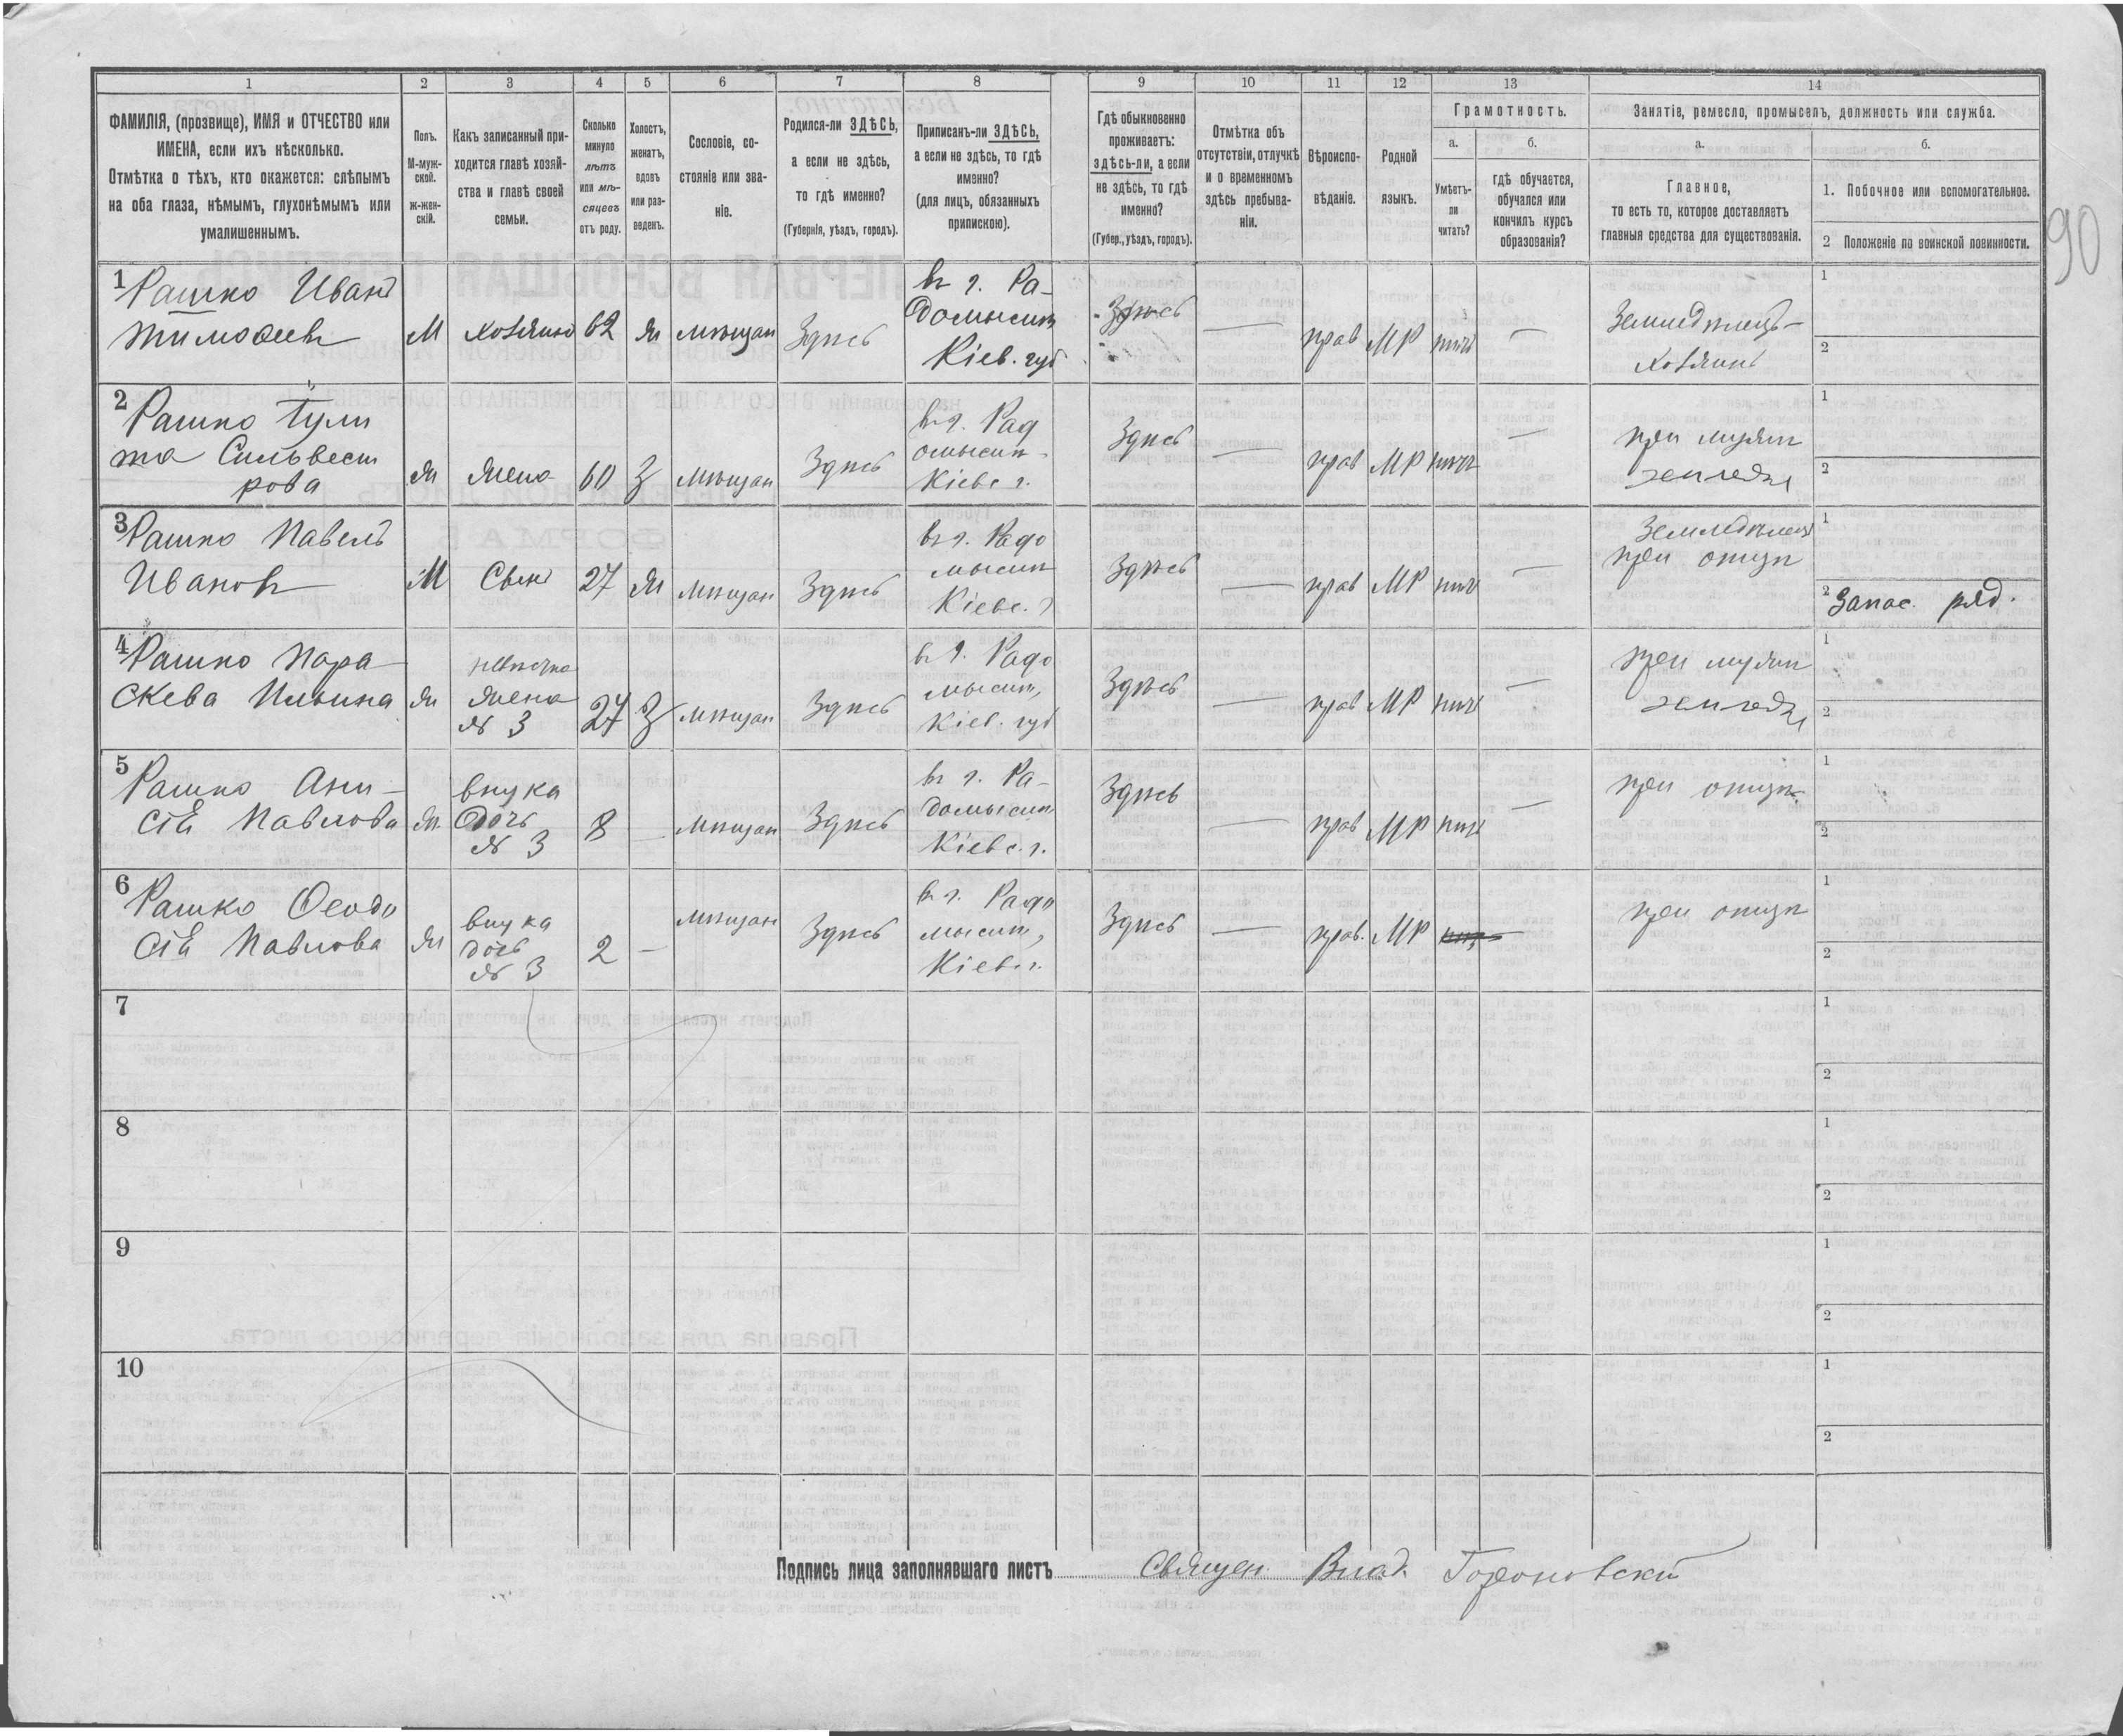 1 2 3 4 5 6 7 8 9 10 11 12 13 14
ФАМИЛІЯ, (прозвище), ИМЯ и ОТЧЕСТВО или
ИМЕНА, если ихъ нѣсколько.
Отмѣтка о тѣхъ, кто окажется: слѣпымъ
на оба глаза, нѣмымъ, глухонѣмымъ или
умалишеннымъ.
Полъ.
М-муж-
ской.
ж-жен-
скій.
Какъ записанный при-
ходится главѣ хозяй-
ства и главѣ своей
семьи.
Сколько
минуло
лѣтъ
или мѣ-
сяцевъ
отъ роду.
Холостъ,
женатъ,
вдовъ
или раз-
веденъ.
Сословіе, со-
стояніе или зва-
ніе.
Родился-ли ЗДѢСЬ,
а если не здѣсь,
то гдѣ именно?
(Губернія, уѣздъ, городъ).
Приписанъ-ли ЗДѢСЬ,
а если не здѣсь, то гдѣ
именно?
(для лицъ, обязанныхъ
припискою).
Гдѣ обыкновенно
проживаетъ:
здѣсь-ли, а если
не здѣсь, то гдѣ
именно?
(Губер., уѣздъ, городъ).
Отмѣтка объ
отсутствіи, отлучкѣ
и о временномъ
здѣсь пребыва-
ніи.
Вѣроиспо-
вѣданіе.
Родной
языкъ.
Грамотность.
а.
Умѣетъ-
ли
читать?
б.
гдѣ обучается,
обучался или
кончилъ курсъ
образованія?
Занятіе, ремесло, промыселъ, должность или служба.
а.
Главное,
то есть то, которое доставляетъ
главныя средства для существованія.
б.
1. Побочное или вспомогательное.
2 Положеніе по воинской повинности.
90
1
Рашко Иванъ
Тимоѳеевъ
М
хозяинъ
62
ж
мѣщан
Здѣсь
въ г. Ра-
домыслѣ
Кіев. губ
Здѣсь
—
прав
МР
нѣтъ
—
Земледѣлецъ-
хозяинъ
1
2
2
Рашко Іули
та Сильвест
рова
ж
жена
60
З
мѣщан
Здѣсь
въ г. Рад
омыслѣ
Кіевс г.
Здѣсь
—
прав
МР
нѣтъ
—
при мужѣ
1
2
3
Рашко Павелъ
Ивановъ
М
Сынъ
27
ж
мѣщан
Здѣсь
въ г. Радо
мыслѣ
Кіевс. г
Здѣсь
—
прав
МР
нѣтъ
—
Земледѣлецъ
при отцѣ
1
2 Запас. ряд.
4
Рашко Пара
скева Ильина
ж
невѣстка
жена
№ 3
27
З
мѣщан
Здѣсь
въ г. Радо
мыслѣ,
Кіев. губ
Здѣсь
—
прав
МР
нѣтъ
—
при мужѣ
1
2
5
Рашко Ани-
сія Павлова
ж.
внука
дочь
№ 3
8
—
мѣщан
Здѣсь
въ г. Ра-
домыслѣ
Кіевс. г.
Здѣсь
—
прав
МР
нѣтъ
—
при отцѣ
1
2
6
Рашко Ѳеодо
сія Павлова
ж
внука
дочь
№ 3
2
—
мѣщан
Здѣсь
въ г. Радо
мыслѣ,
Кіевс г.
Здѣсь
—
прав.
МР
при отцѣ
1
2
7
1
2
8
1
2
9
1
2
10
1
2
Подпись лица заполнявшаго листъ Священ. Влад.